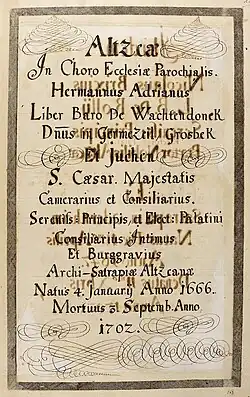 Altzeæ
In Choro Ecclesiæ Parochialis.
Hermannus Adrianus
Liber Baro De Wachtendonek
Dn̄us in Germezeil Grosbek
Et Juchen.
S. Cæsar. Majestatis
Camerarius et Consiliarius.
Sereniss. Principis et Elect. Palatini
Consiliarius Intimus
Et Burggravius
Archi-Satrapiæ Altzeanæ
Natus 4. Januarij Anno 1666.
Mortuus 31 Septemb. Anno
1702.